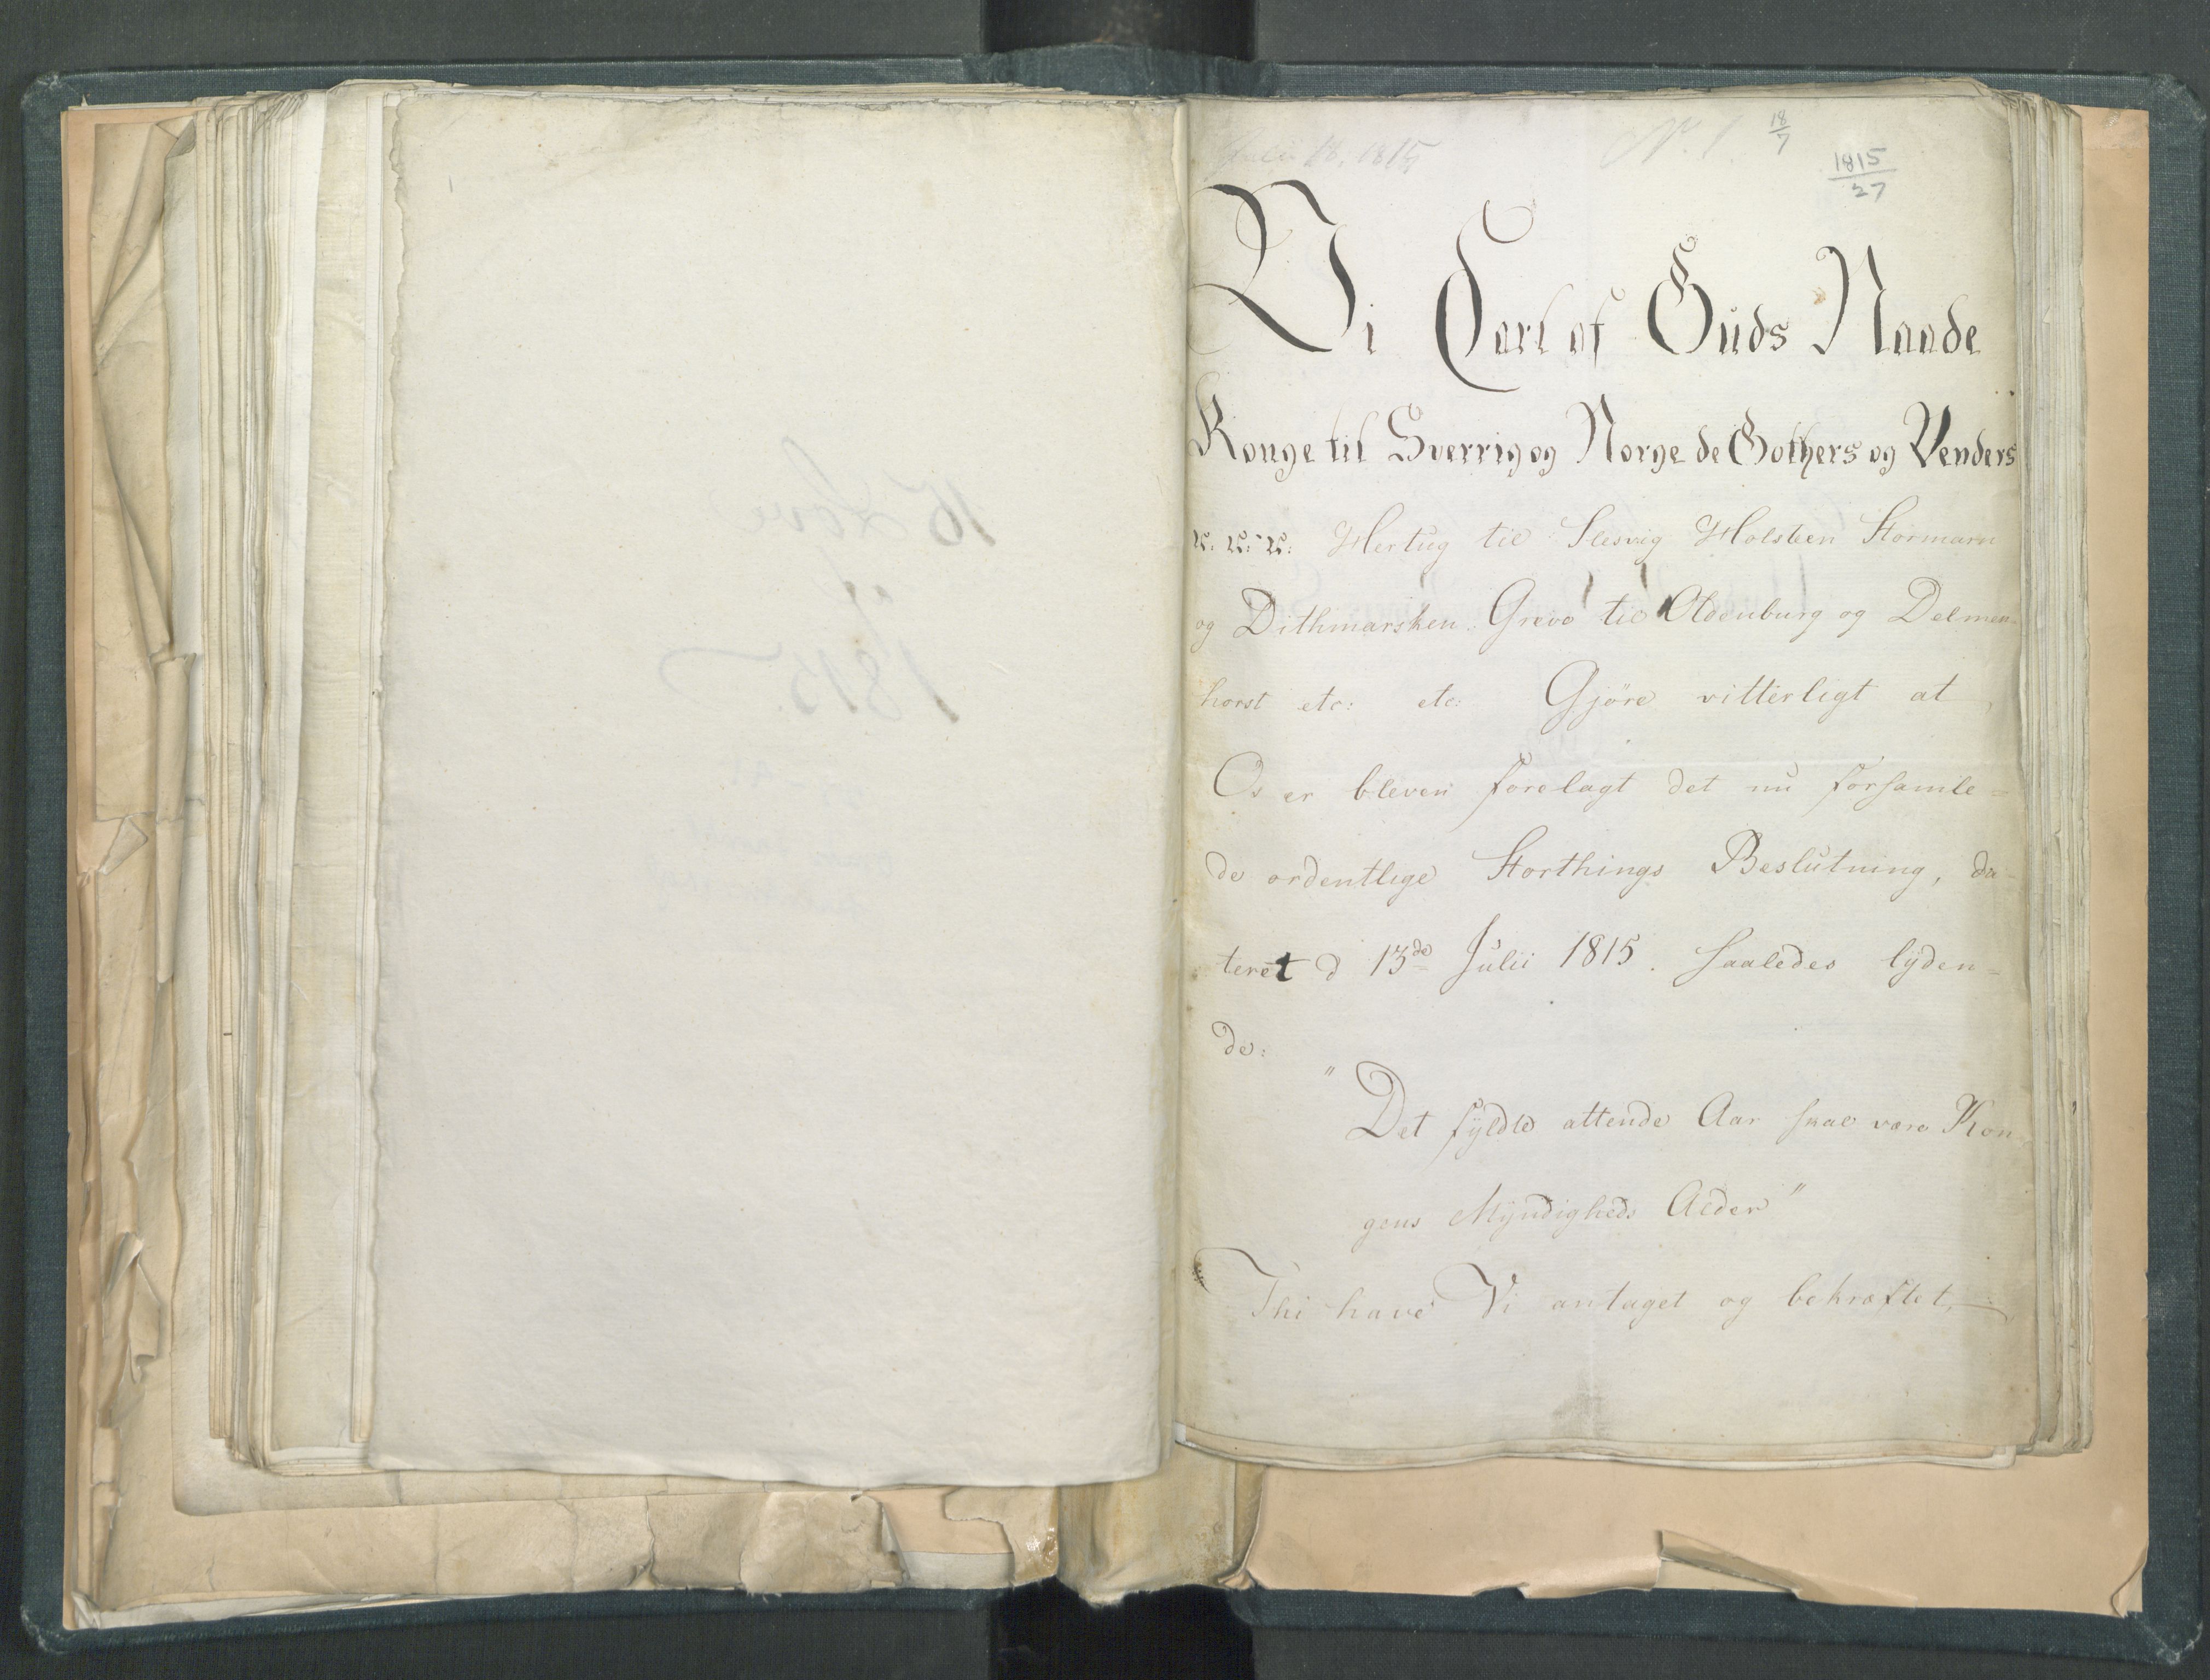 Julii 18, 1815
N. 1
18/7
1815/27
Vi Carl af Guds Naade
Konge til Sverrig og Norge de Gothers og Venders
ꝛc: ꝛc: ꝛc: Hertug til Slesvig Holsten Stormarn
og Dithmarsken Greve til Oldenburg og Delmen-
horst etc: etc: Gjöre vitterligt at,
Os er bleven forelagt det nu forsamle=
de ordentlige Storthings Beslutning, da-
teret d 13de Julii 1815. Saaledes lyden=
de:
"Det fyldte attende Aar skal være Kon-
gens Myndigheds Alder"
Thi have Vi antaget og bekræftet,
16 Love
af
1815